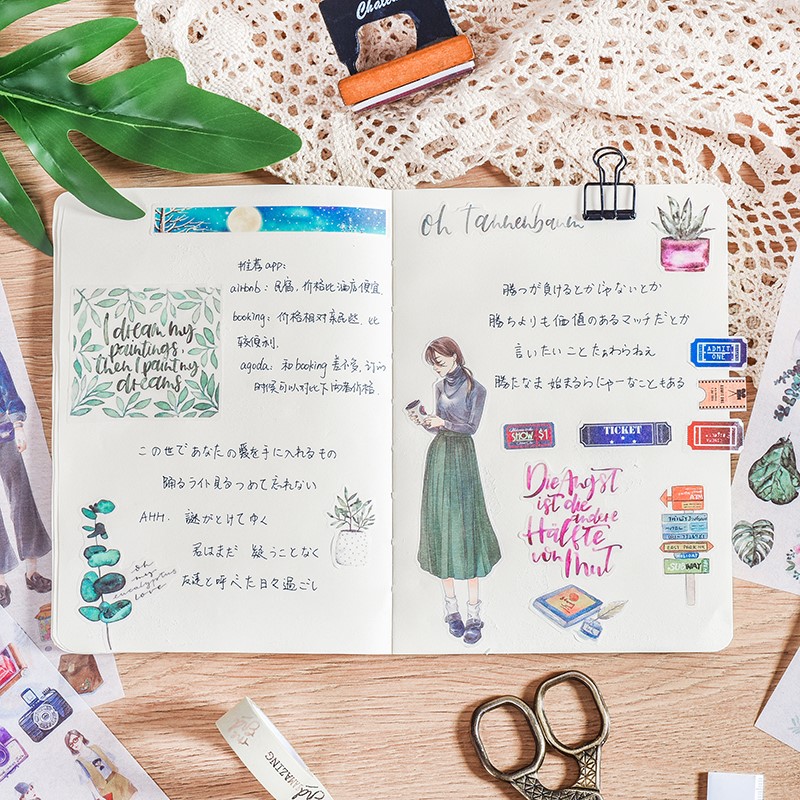 推荐app:
airbnb: 民宿,价格比酒店便宜
booking: 价格相对亲民些,比
较便利.
agoda: 和booking差不多,订的
时候可以对比下两者价格.
I dream my
paintings,
then I paint my
dreams
この世であなたの愛を手に入れるもの
踊るライト見るつめて忘れない
AHH. 謎がとけてゆく
君はまだ 疑うことなく
友達と呼べた日々過ごし
oh
my
eucalyptus
love
oh Tannenbaum
勝つが負けるとかじゃないとか
勝ちよりも価値のあるマッチだとか
言いたいこと
勝たなま 始まるらにゃーなこともある
ADMIT
ONE
SHOW $1
TICKET
Die Angst
ist die
andere
Hälfte
von Mut
EAST PARK
HOLIDAY
SUBWAY
AMAZING